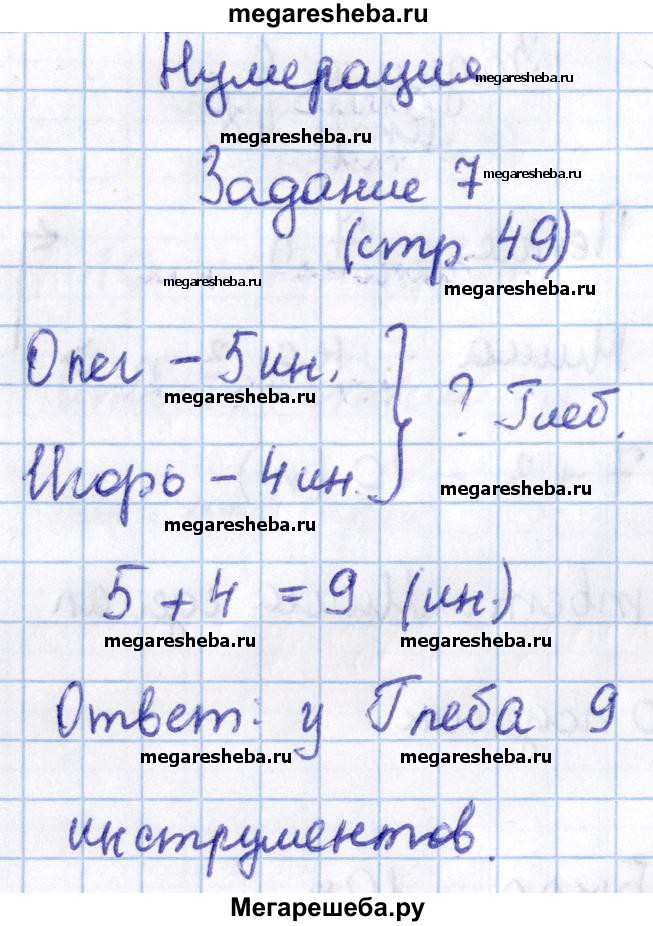 megaresheba.ru
Нумерация
megaresheba.ru
megaresheba.ru
Задание 7
megaresheba.ru
(стр. 49)
megaresheba.ru
megaresheba.ru
Олег - 5 ин.
megaresheba.ru
? Глеб.
Игорь - 4 ин.
megaresheba.ru
megaresheba.ru
5 + 4 = 9 (ин.)
megaresheba.ru megaresheba.ru
Ответ: у Глеба 9
megaresheba.ru megaresheba.ru
инструментов.
Мегарешеба.ру